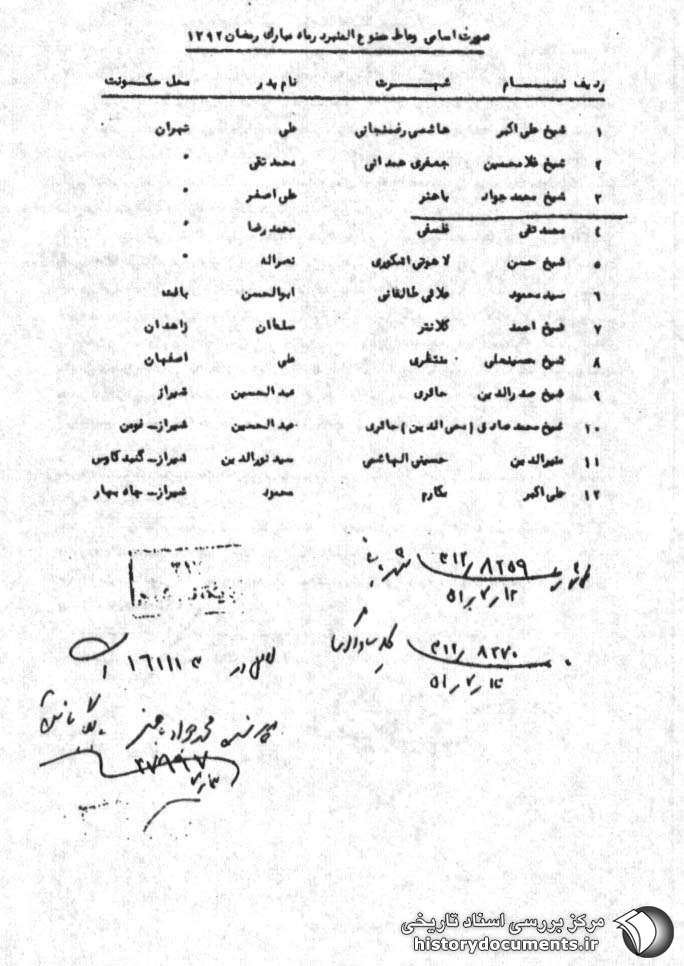 صورت اسامی وعاظ ممنوع المنبر در ماه مبارک رمضان ۱۳۹۲
ردیف نـــــام شهـــــرت نام پدر محل سکـونت
۱ شیخ علی اکبر هاشمی رفسنجانی علی تهران
۲ شیخ غلامحسین جعفری همدانی محمد تقی "
۳ شیخ محمد جواد باهنر علی اصغر "
۴ محمد تقی فلسفی محمد رضا "
۵ شیخ حسن لاهوتی اشکوری نصراله "
۶ سید محمود علائی طالقانی ابوالحسن بافت
۷ شیخ احمد کلانتر سلطان زاهدان
۸ شیخ حسینعلی منتظری علی اصفهان
۹ شیخ صدرالدین حائری عبدالحسین شیراز
۱۰ شیخ محمد صادق (محی الدین) حائری عبدالحسین شیراز - فومن
۱۱ منیرالدین حسینی الهاشمی سید نورالدین شیراز - گنبد کاوس
۱۲ علی اکبر مکارم محمود شیراز - چاه بهار
۳۱۲/۸۲۵۹
۵۱/۷/۱۲
۳۱۲/۸۲۷۰
۵۱/۷/۱۲
۳۱۲
۱۶۱۱۱۳
محمد جواد باهنر
۲۷۹۹۷
مرکز بررسی اسناد تاریخی
historydocuments.ir